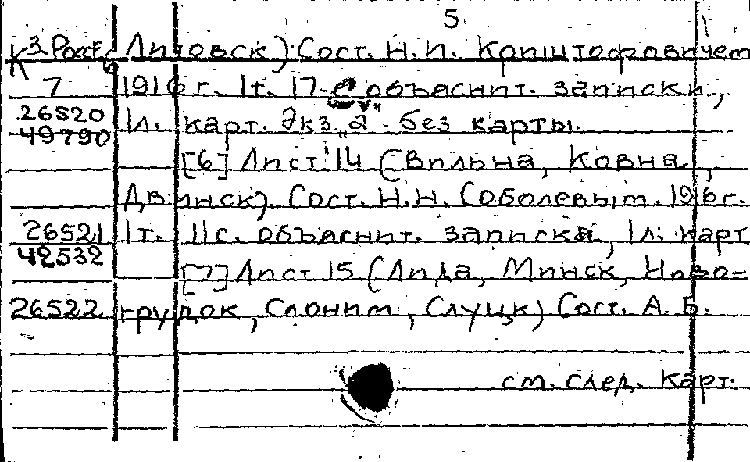 5.
К3.Росс. Литовск). Сост. Н.И. Криштофовичем
7 1916 г. 1т. 17 с объяснит. записки,
26520 1л. карт. Экз. "а" без карты.
49790
[6] Лист 14 (Вильна, Ковна,
Двинск). Сост. Н.Н. Соболевым. 1916г.
26521 1т. 11с. объяснит. записка, 1л. карт
42532
[7] Лист 15 (Лида, Минск, Ново-
26522 грудок, Слоним, Слуцк) Сост. А.Б.
см. след. карт.